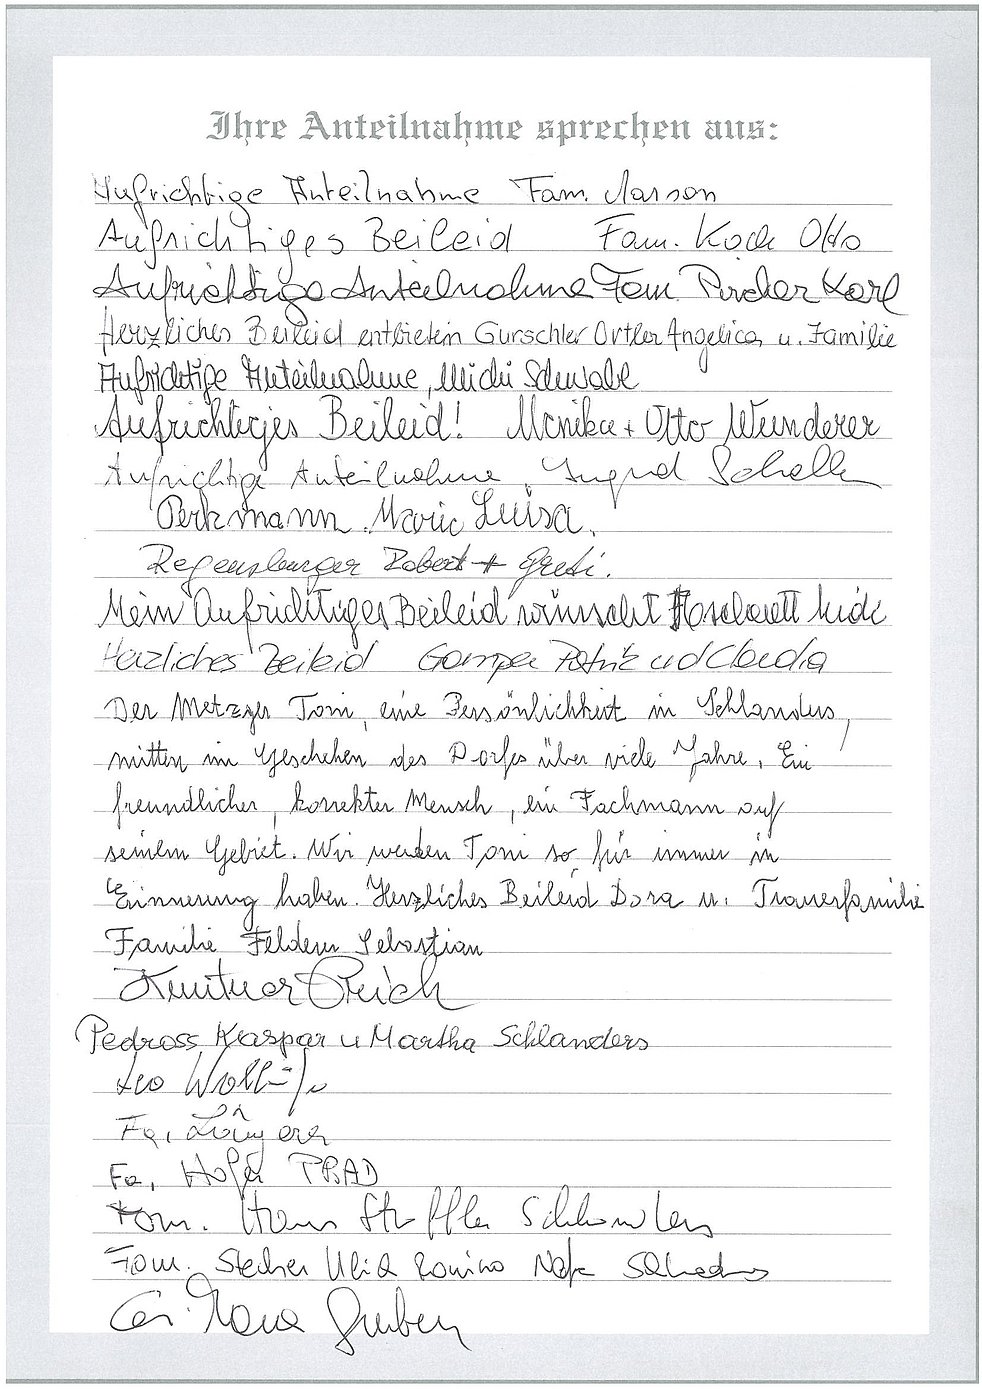 Ihre Anteilnahme sprechen aus:
Aufrichtige Anteilnahme Fam.
Aufrichtiges Beileid Fam. Koch Otto
Aufrichtige Anteilnahme Fam. Pircher Karl
Herzliches Beileid entbieten Gurschler Ortler Angelica u. Familie
Aufrichtige Anteilnahme, Michi Schwalt
Aufrichtiges Beileid! Monika + Otto Wunderer
Aufrichtige Anteilnahme, Ingrid
Perkmann Maria Luisa.
Regensburger Robert + Greti.
Mein Aufrichtiges Beileid wünscht
Herzliches Beileid Gamper Patrik und Claudia
Der Metzger Toni, eine Persönlichkeit in Schlanders,
mitten im Geschehen des Dorfes über viele Jahre. Ein
freundlicher, korrekter Mensch, ein Fachmann auf
seinem Gebiet. Wir werden Toni so für immer in
Erinnerung haben. Herzliches Beileid Dora u. Trauerfamilie
Familie Felderer Sebastian
Erich
Pedross Kaspar u Martha Schlanders
Leo
Fa.
Fa. Hofer
Fam. Hans Schlanders
Fam. Stecher